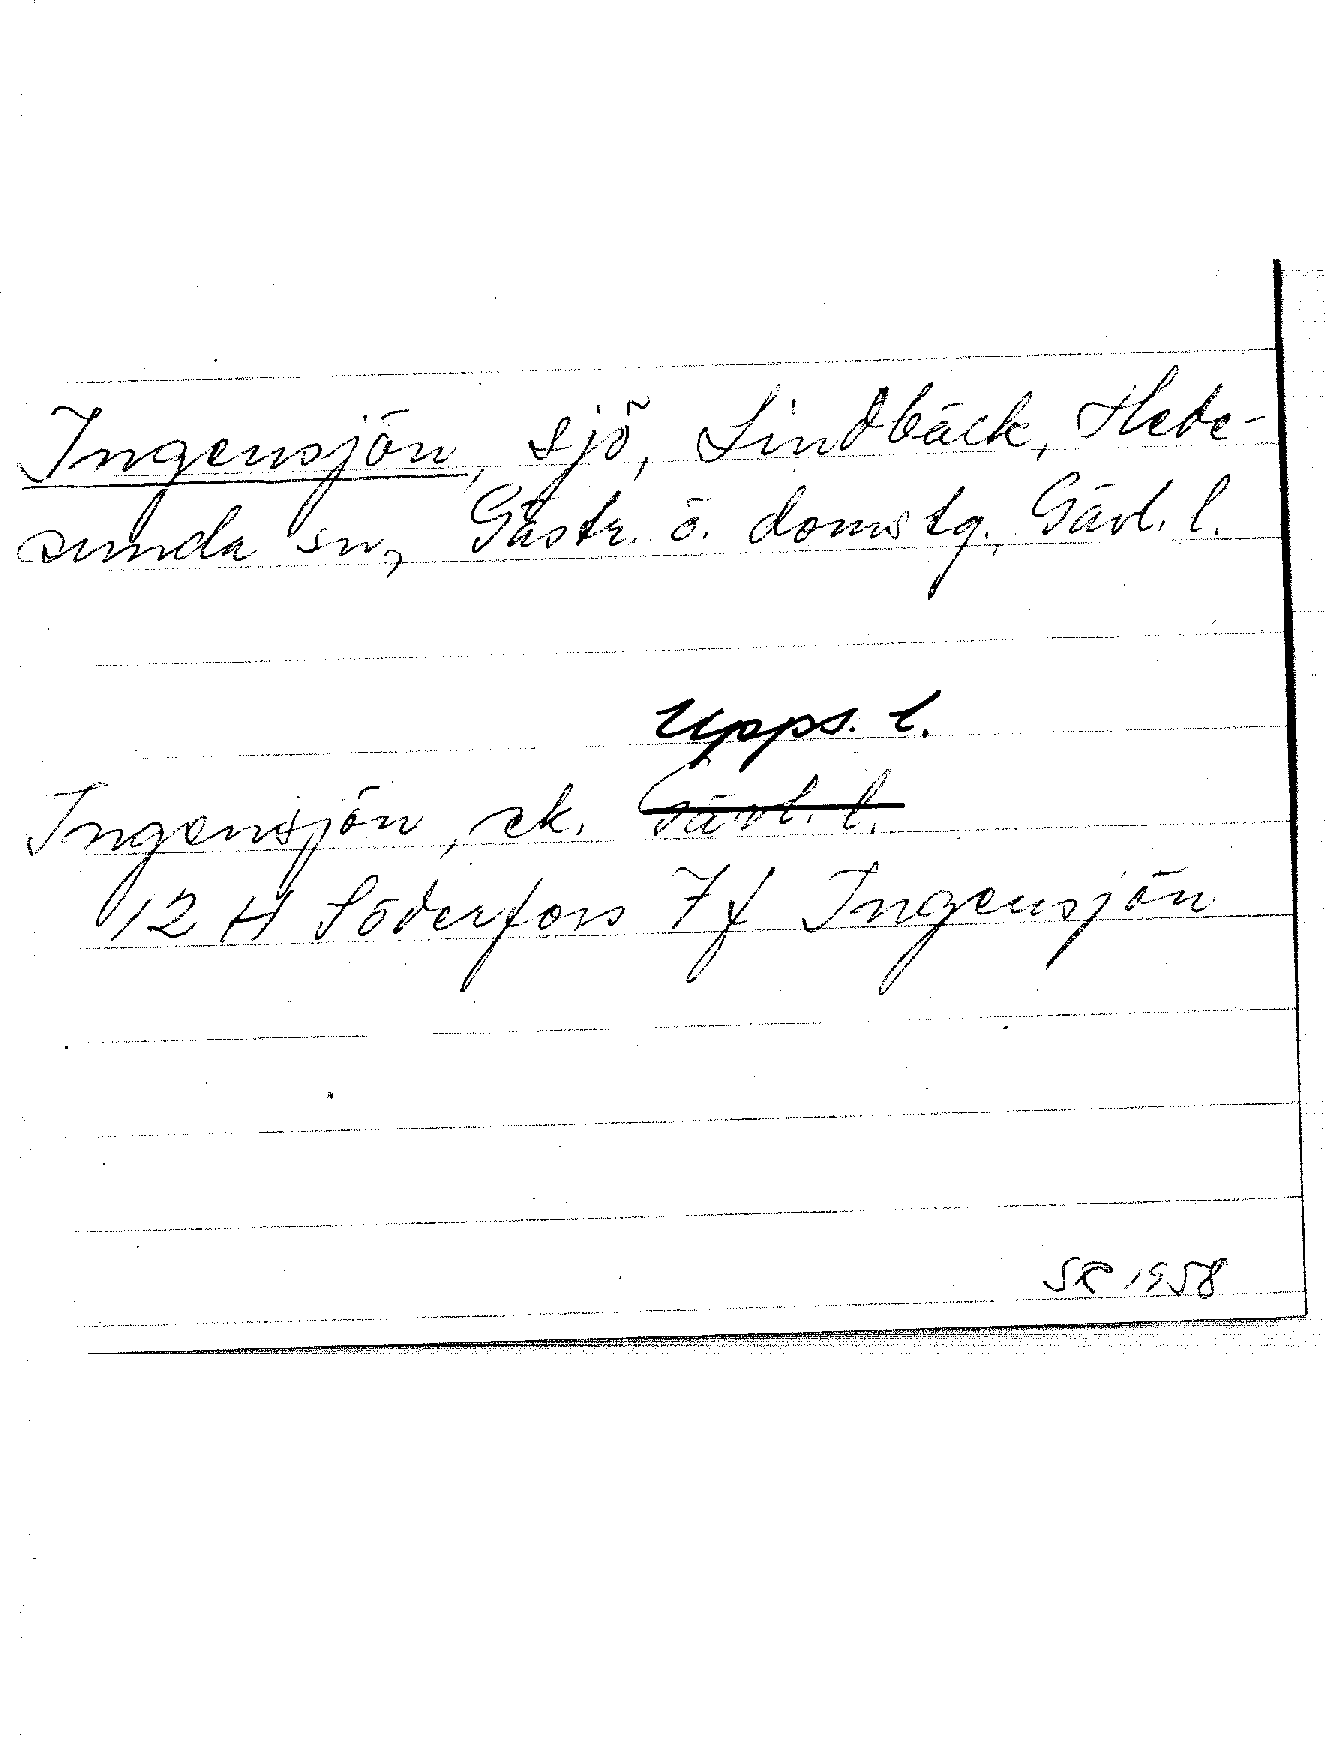 Ingensjön, sjö, Lindbäck, Hede-
sunda sn, Gästr. ö. domstg. Gävl. l.
Upps. l.
Ingensjön, ek. Gävl. l.
12 H Söderfors 7f Ingensjön
SR 1958